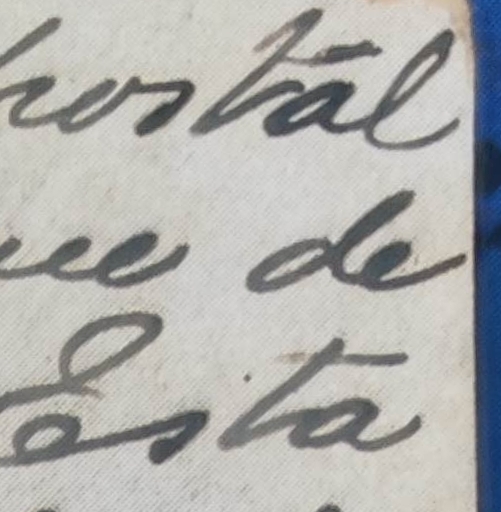 postal
ue de
Esta